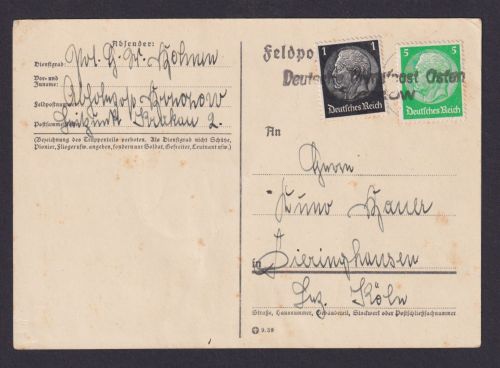 Absender:
Dienstgrad:
Vor- und
Zuname:
Feldpostnummer
Postsammel
Leitpunkt Krakau 2.
(Bezeichnung des Truppenteils verboten. Als Dienstgrad nicht Schütze,
Pionier, Flieger usw. angeben, sondern nur Soldat, Gefreiter, Leutnant usw.)
Feldpo
1 1
Deutsches Reich
5 5
Deutsches Reich
Deutsche Dienstpost Osten
An
Herrn
Kuno Hauer
in Dieringhausen
Bez. Köln
Straße, Hausnummer, Gebäudeteil, Stockwerk oder Postschließfachnummer
9.39